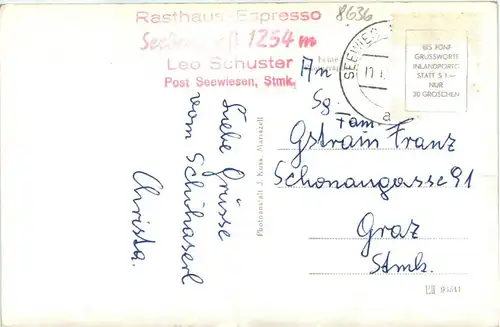 Rasthaus-Espresso
1254 m
Leo Schuster
Post Seewiesen, Stmk.
8636
SEEWIES
a
BIS FÜNF
GRUSSWORTE
INLANDPORTO
STATT S 1·—
NUR
30 GROSCHEN
An
Sg.
Fam.
Gstram Franz
Schönaugasse 91
Graz
Stmk.
Liebe Grüsse
vom Schihaserl
Christa.
Photoanstalt J. Kuss, Mariazell